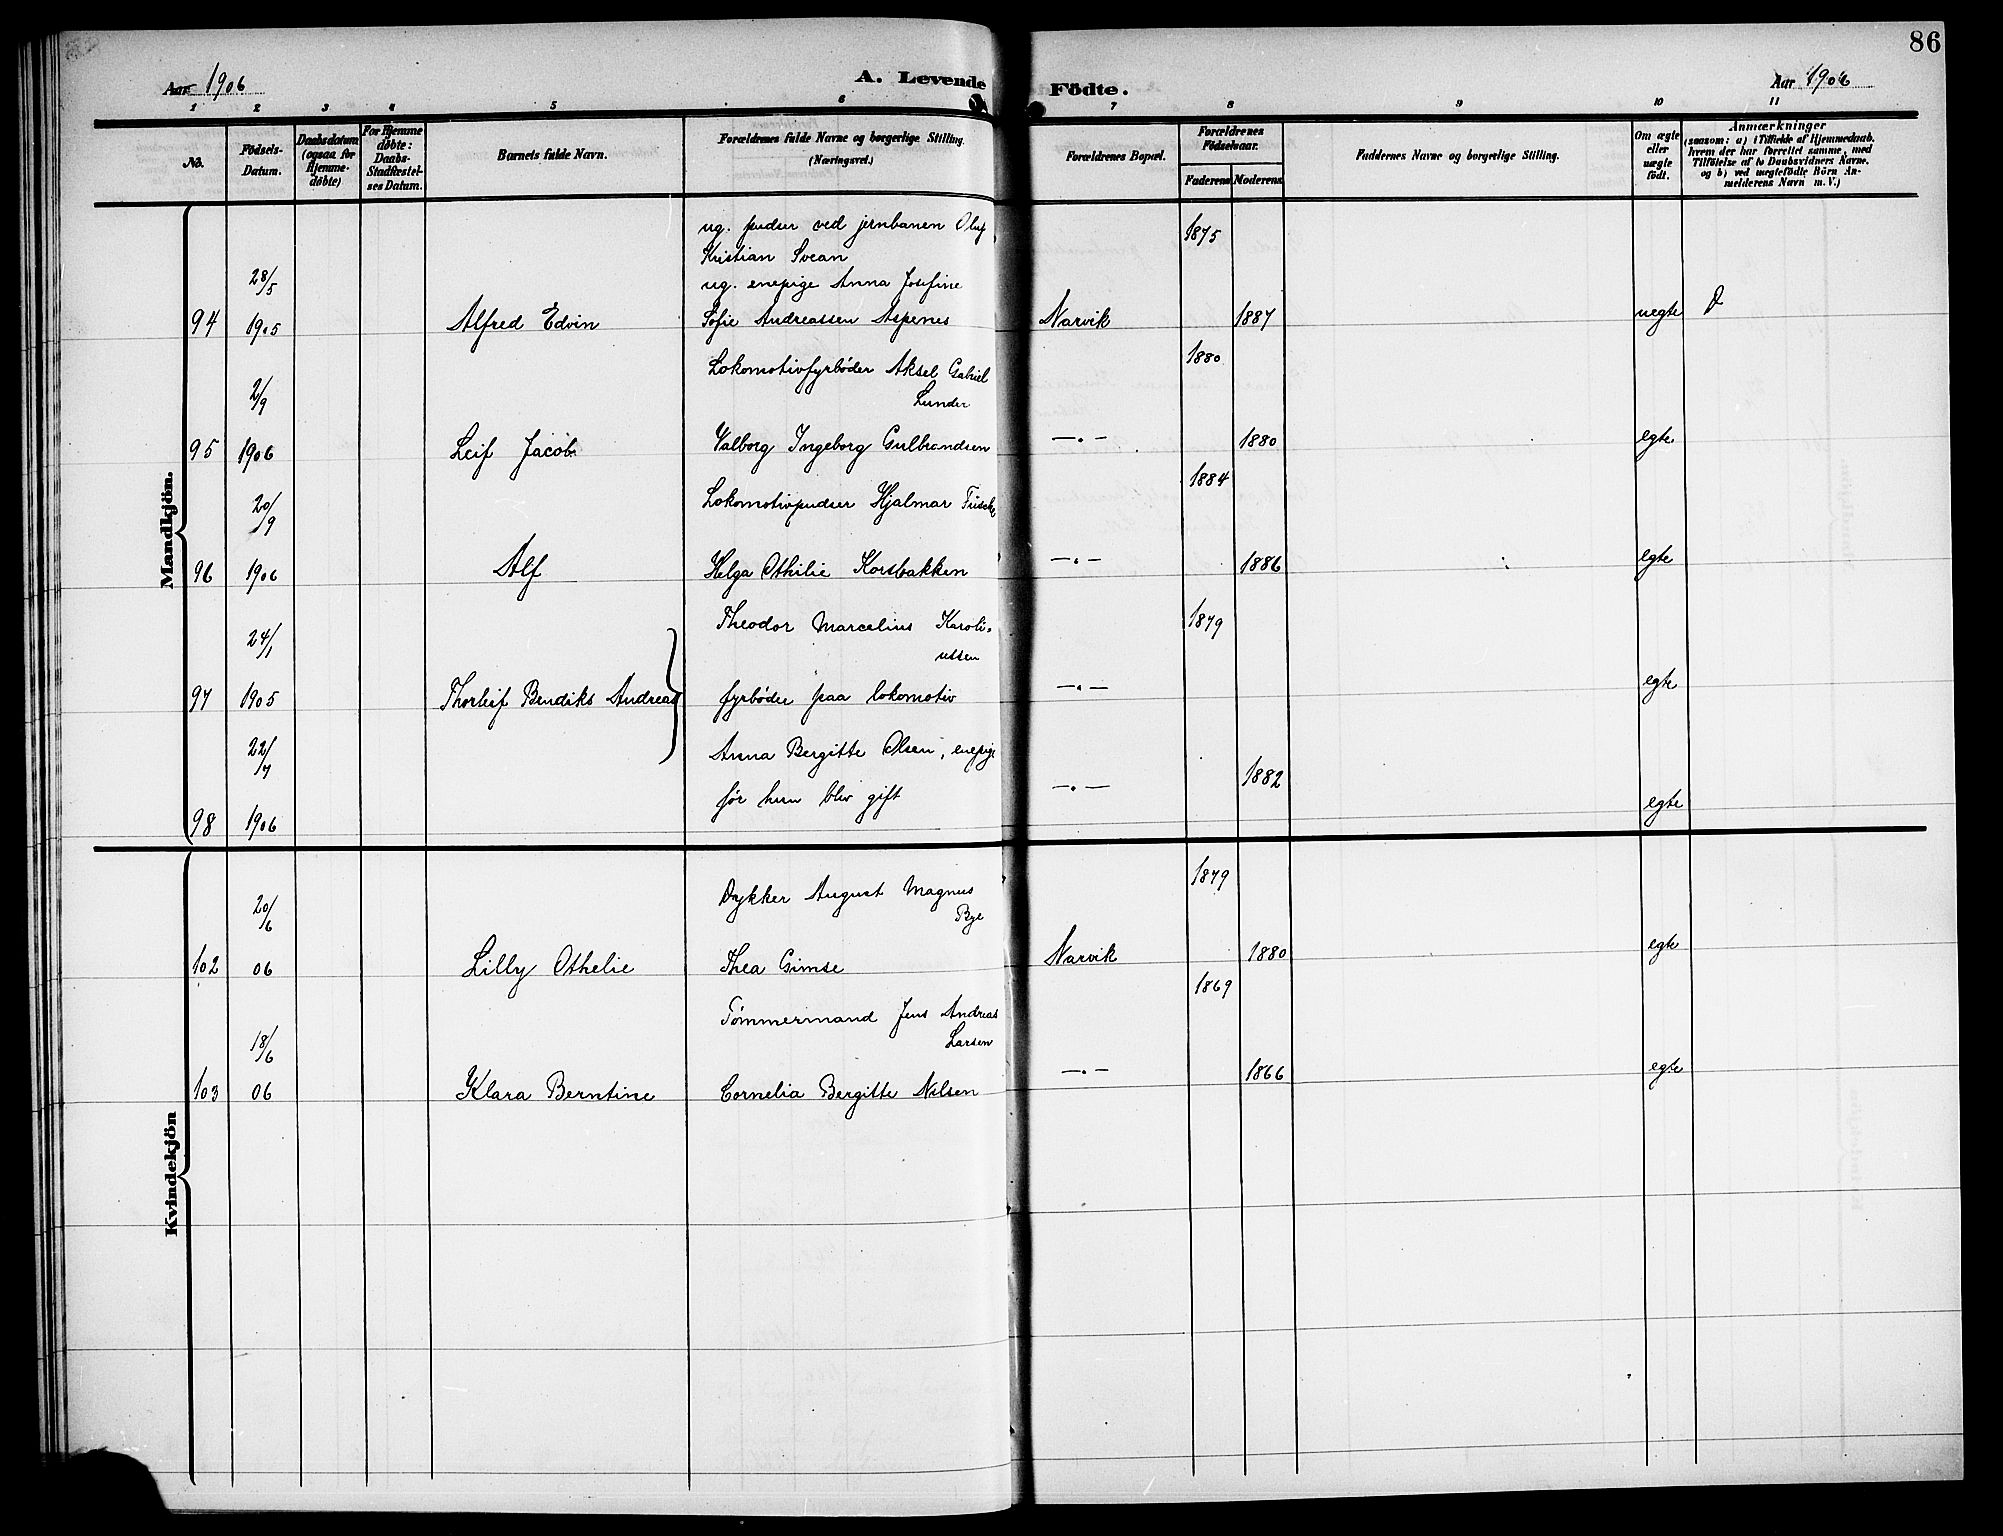 86
Aar 1906
A. Levende Födte.
Aar 1906
1 2 3 4 5 6 7 8 9 10 11
No.
Födsels-Datum.
Daabsdatum (ogsaa for Hjemmedøbte)
For Hjemmedøbte: Daabs-Stadfæstelses Datum.
Barnets fulde Navn.
Forældrenes fulde Navne og borgerlige Stilling. (Næringsvei.)
Forældrenes Bopæl.
Forældrenes Födselsaar.
Faderens Moderens
Faddernes Navne og borgerlige Stilling.
Om ægte eller uægte født.
Anmærkninger
(saasom: a) i Tilfælde af Hjemmedaab, hvem der har forrettet samme, med Tilföielse af to Daabsvidners Navne. og b) ved uægtefödte Börn Anmelderens Navn m. V.)
Mandkjön.
ug. pudser ved jernbanen Oluf 1875
Kristian Svean
28/5 ug. enepige Anna Josefine
94 1905 Alfred Edvin Sofie Andreassen Aspenes Narvik 1887 uegte D
Lokomotivfyrbøder Aksel Gabriel 1880
2/9 Lunder
95 1906 Leif Jacob Valborg Ingeborg Gulbrandsen —„— 1880 egte
20/9 Lokomotivpudser Hjalmar 1884
96 1906 Alf Helga Othilie Korsbakken —„— 1886 egte
24/1 Theodor Marcelius Karoli- 1879
ussen
97 1905 Thorleif Bendiks Andreas fyrbøder paa lokomotiv —„— egte
22/7 Anna Bergitte Olsen, enepige
før hun blev gift —„— 1882
98 1906 egte
Kvindekjön
20/6 Dykker August Magnus 1879
Bye
102 06 Lilly Othelie Thea Gimse Narvik 1880 egte
18/6 Tømmermand Jens Andreas 1869
Larsen
103 06 Klara Berntine Cornelia Bergitte Nilsen —„— 1866 egte